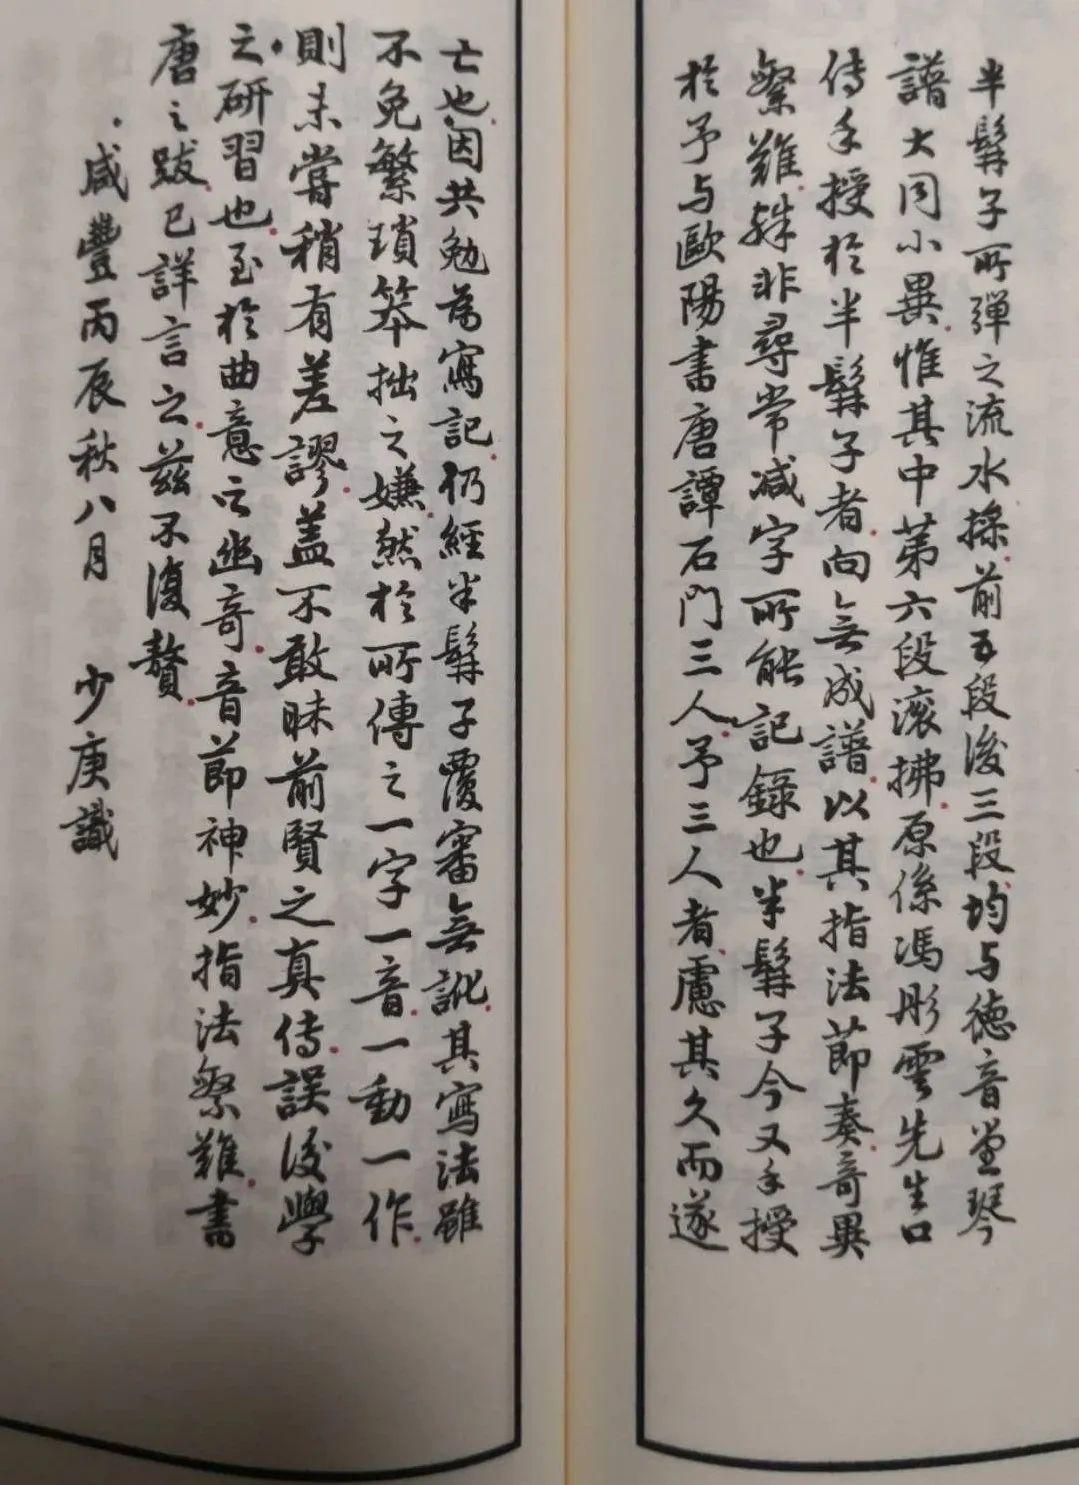 半髯子所彈之流水操前五段後三段均与德音堂琴
譜大同小異惟其中苐六段滚拂原係馮彤雲先生口
傳手授於半髯子者向無成譜以其指法節奏奇異
繁難殊非尋常减字所能記錄也半髯子今又手授
於予与歐陽書唐譚石門三人予三人者慮其久而遂
亡也因共勉為寫記仍經半髯子覆審無訛其寫法雖
不免繁瑣笨拙之嫌然於所傳之一字一音一動一作
則未嘗稍有差謬盖不敢昧前賢之真傳誤後學
之研習也至於曲意之幽奇音節神妙指法繁難書
唐之跋已詳言之兹不復贅
咸豐丙辰秋八月 少庚識